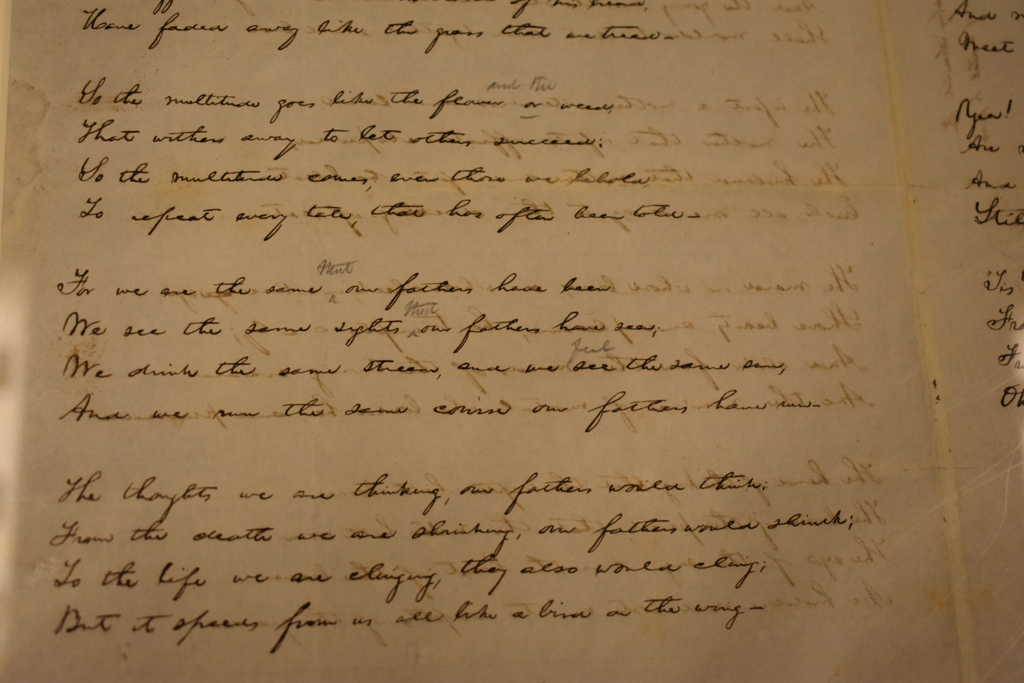 of his bread,
Have faded away like the grass that we tread—
So the multitude goes like the flower and the or weed
That withers away to let others succeed;
So the multitude comes, even those we behold
To repeat every tale, that has often been told—
For we are the same that our fathers have been
We see the same sights that our fathers have seen;
We drink the same stream, and we feel see the same sun,
And we run the same course our fathers have run—
The thoughts we are thinking, our fathers would think;
From the death we are shrinking, our fathers would shrink;
To the life we are clinging, they also would cling;
But it speeds from us all like a bird on the wing—
And
Meet
Yea!
Are
And
Still
'Tis
From
Oh